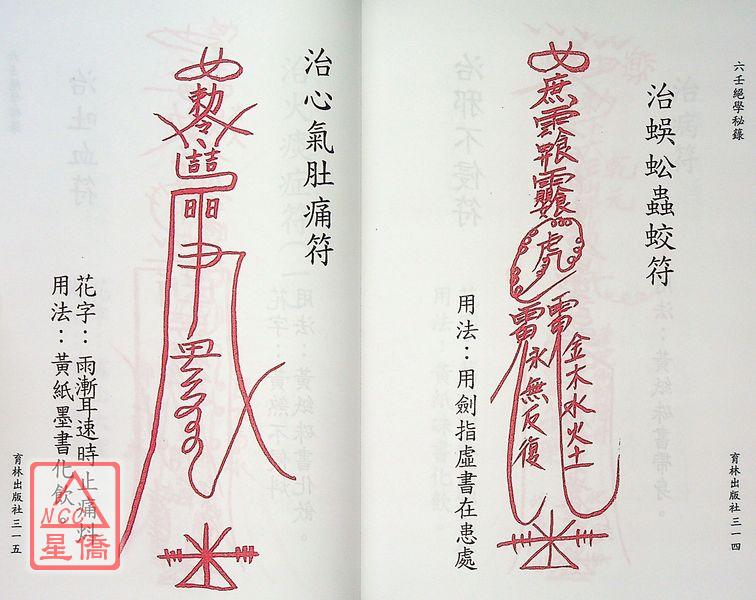 六壬絕學秘錄
治蜈蚣蟲蛟符
雷 雷
虎
金木水火土
永無反復
用法：用劍指虛書在患處
育林出版社三一四
治心氣肚痛符
勅令
喆
花字：雨漸耳速時止痛炓
用法：黃紙墨書化飲。
育林出版社三一五
NCC
星僑